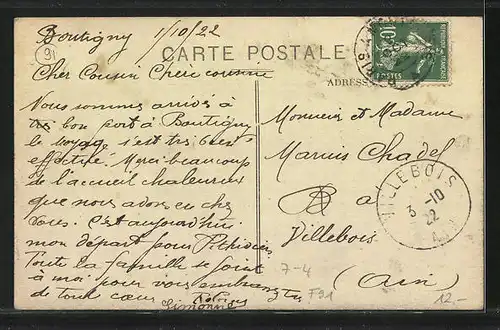 Boutigny 1/10/22
CARTE POSTALE
91
Cher Cousin Chère cousine
ADRESSE
Nous sommes arrivés à
bon port à Boutigny
le voyage s'est très bien
effectué. Merci beaucoup
de l'accueil chaleureux
que nous avons eu chez
vous. C'est aujourd'hui
mon départ pour Pithiviers
Toute la famille se joint
à moi pour vous embrasser
de tout cœur
Simonne
Monsieur et Madame
Marius Chadel
à
Villebois
(Ain)
VILLEBOIS
3 -10
22
7-4
F91
12.-
POSTES